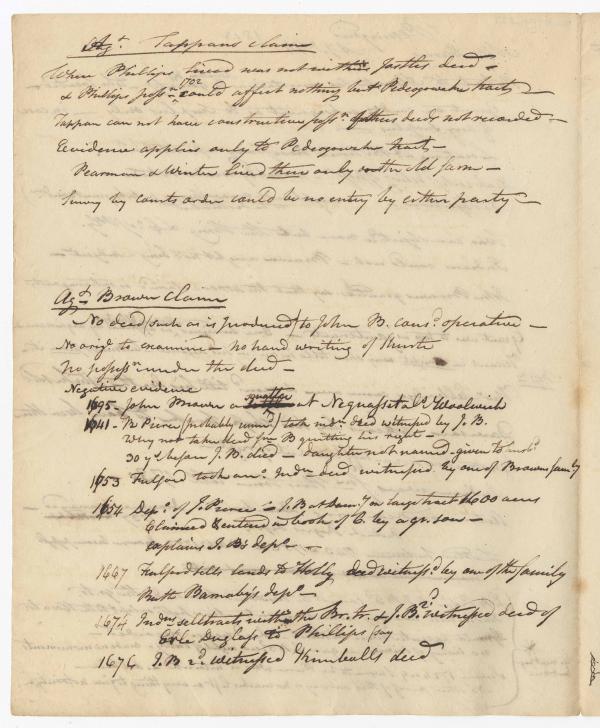 Agt. Tappans claim
Where Phillips lived was not within Jostles deed —
& Phillips possn. 1702 could affect nothing but Pedcogowake tract —
Tappan can not have constructive possn. deeds not recorded —
Evidence applies only to Pedcogowake tract —
Pearman & Winter lived there only on the old farm —
Survey by courts order could be no entry by either party —
Agt. Brown claim
No deed (such as is produced) to John B. cansd. operative —
No origl. to examine — no hand writing of
No possessn. under the deed —
Negative evidence
1695 — John Brown a squatter at Neguasset als. Woolwich
1641 — R Pierce (probably ) took indn. deed witnessed by J. B.
Why not take deed from B quitting his right —
30 ys. before J. B. died — daughter not named — given to
1653 Fulford took anr. Indn. deed witnessed by one of Browns family
1654 Depn. of J. Pierce — J. B at Dam. on large tract 1600 acres
Claimed & entered in book of C. by a gr. son —
explains J. B's depn. —
1667 Fulford sells lands to Holly deed witnessd. by one of the family
Ruth Barnaby's depn. —
1674 Indns. sell tracts within the Br. tr. & J. B. 2d. witnessed deed of
to Phillips say
1676 J. B 2d. witnessed Kimballs deed